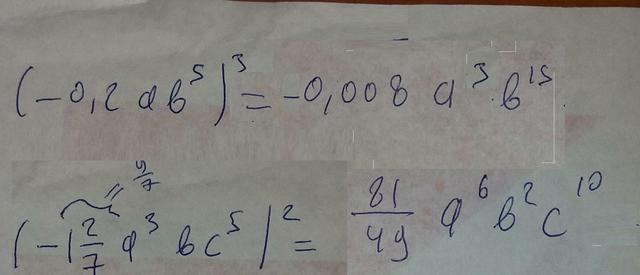 (-0,2 ab⁵)³ = -0,008 a³b¹⁵
= 9/7
(-1 2/7 a³bc⁵)² = 81/49 a⁶b²c¹⁰